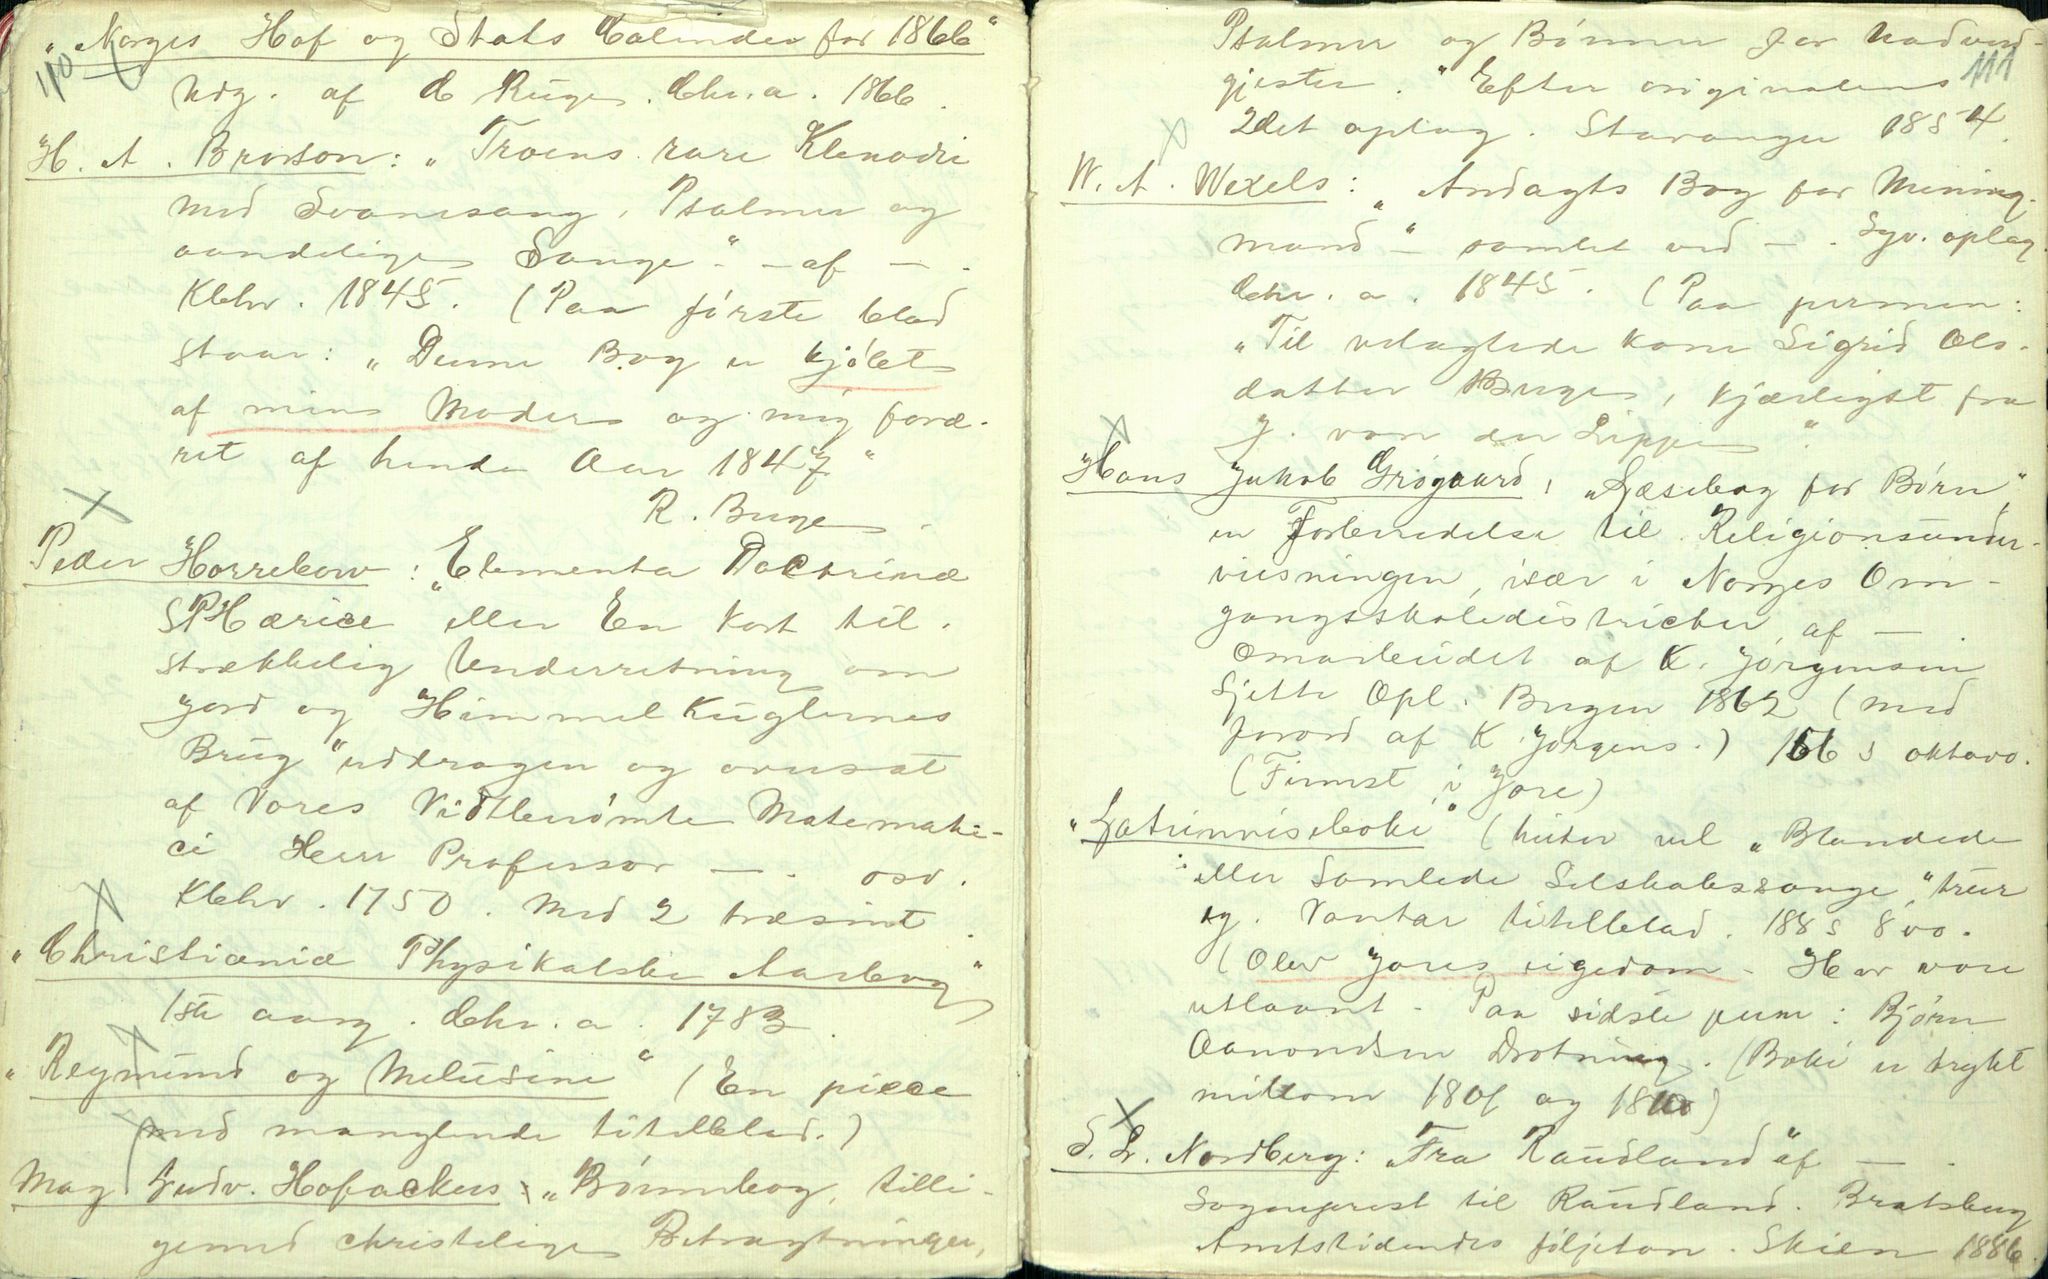 110
„Norges Hof og Stats Calender for 1866“
Udg. af C Runge. Chr.a. 1866.
H. A. Brorson: „Troens rare Klenodie
med Svanesang, Psalmer og
aandelige Sange“ - af - .
Kbhv. 1845. (Paa første blad
staar: „Denne Bog er kjøbt
af mine Moder og mig foræ-
ret af hende Aar 1847“
R. Buge.
Peder Horrebow: „Elementa Doctrinæ
SPHæricæ eller En kort til-
strækkelig Underretning om
Jord og Himmel Kuglernes
Brug“ uddragen og oversat
af Vores Vidtberømte Matemati-
ci Herr Professor - . osv.
Kbhv. 1750. Med 2 træsnit.
„Christianiæ Physikalske Aarbog“
1ste aarg. Chr.a. 1783.
„Reymund og Melusine“ (En piece
med manglende titelblad.)
Mag Ludv. Hofackers: „Bønnebog, tilli-
gemed christelige Betragtninger,
111
Psalmer og Bønner for Nadver-
gjester.“ Efter originalens
2det oplag. Stavanger 1854.
W. A. Wexels: „Andagts Bog for Menig-
mand“ - samlet ved - . Syv. oplag.
Chr.a. 1845. (Paa permen:
„Til velagtede Kone Sigrid Ols-
datter Buge, kjærligst fra
J. von der Lippe“.
Hans Jakob Grøgaard, „Læsebog for Børn“,
en Forberedelse til Religionsunder-
viisningen, især i Norges Om-
gangsskoledistricter, af - .
Omarbeidet af K. Jørgensen
Sjette Opl. Bergen 1862 (med
forord af K Jørgens.) 166 s oktavo.
(Finnst i Jore)
„Latinviseboki“ (heiter vel „Blandede
eller Samlede Selskabssange,“ trur
eg. Vantar titelblad. 188 s 8vo.
(Olav Jores eigedom - Har vore
utlaant - Paa sidste perm: Björn
Aanondsen Drotning. (Boki er trykt
millom 1801 og 1810)
S. L. Nordberg: „Fra Raudland“ af - .
Sogneprest til Raudland. Bratsberg
Amtstidendes føljeton. Skien 1886.